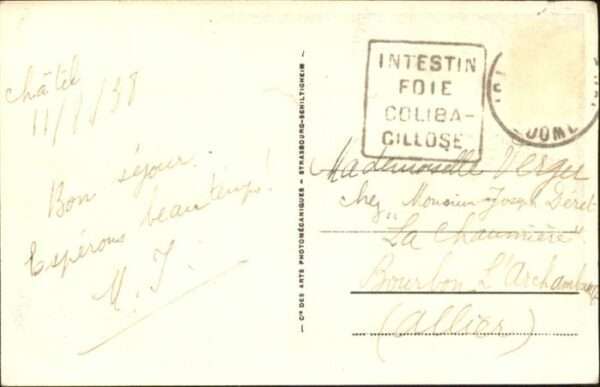 Châtel
11/8/38
Bon séjour.
Espérons beau temps!
M. J.
Cie DES ARTS PHOTOMÉCANIQUES - STRASBOURG-SCHILTIGHEIM
INTESTIN
FOIE
COLIBA-
CILLOSE
DOME
Mademoiselle Verger
chez Monsieur Joseph Déret
"La Chaumière"
Bourbon L'Archambault
(Allier)